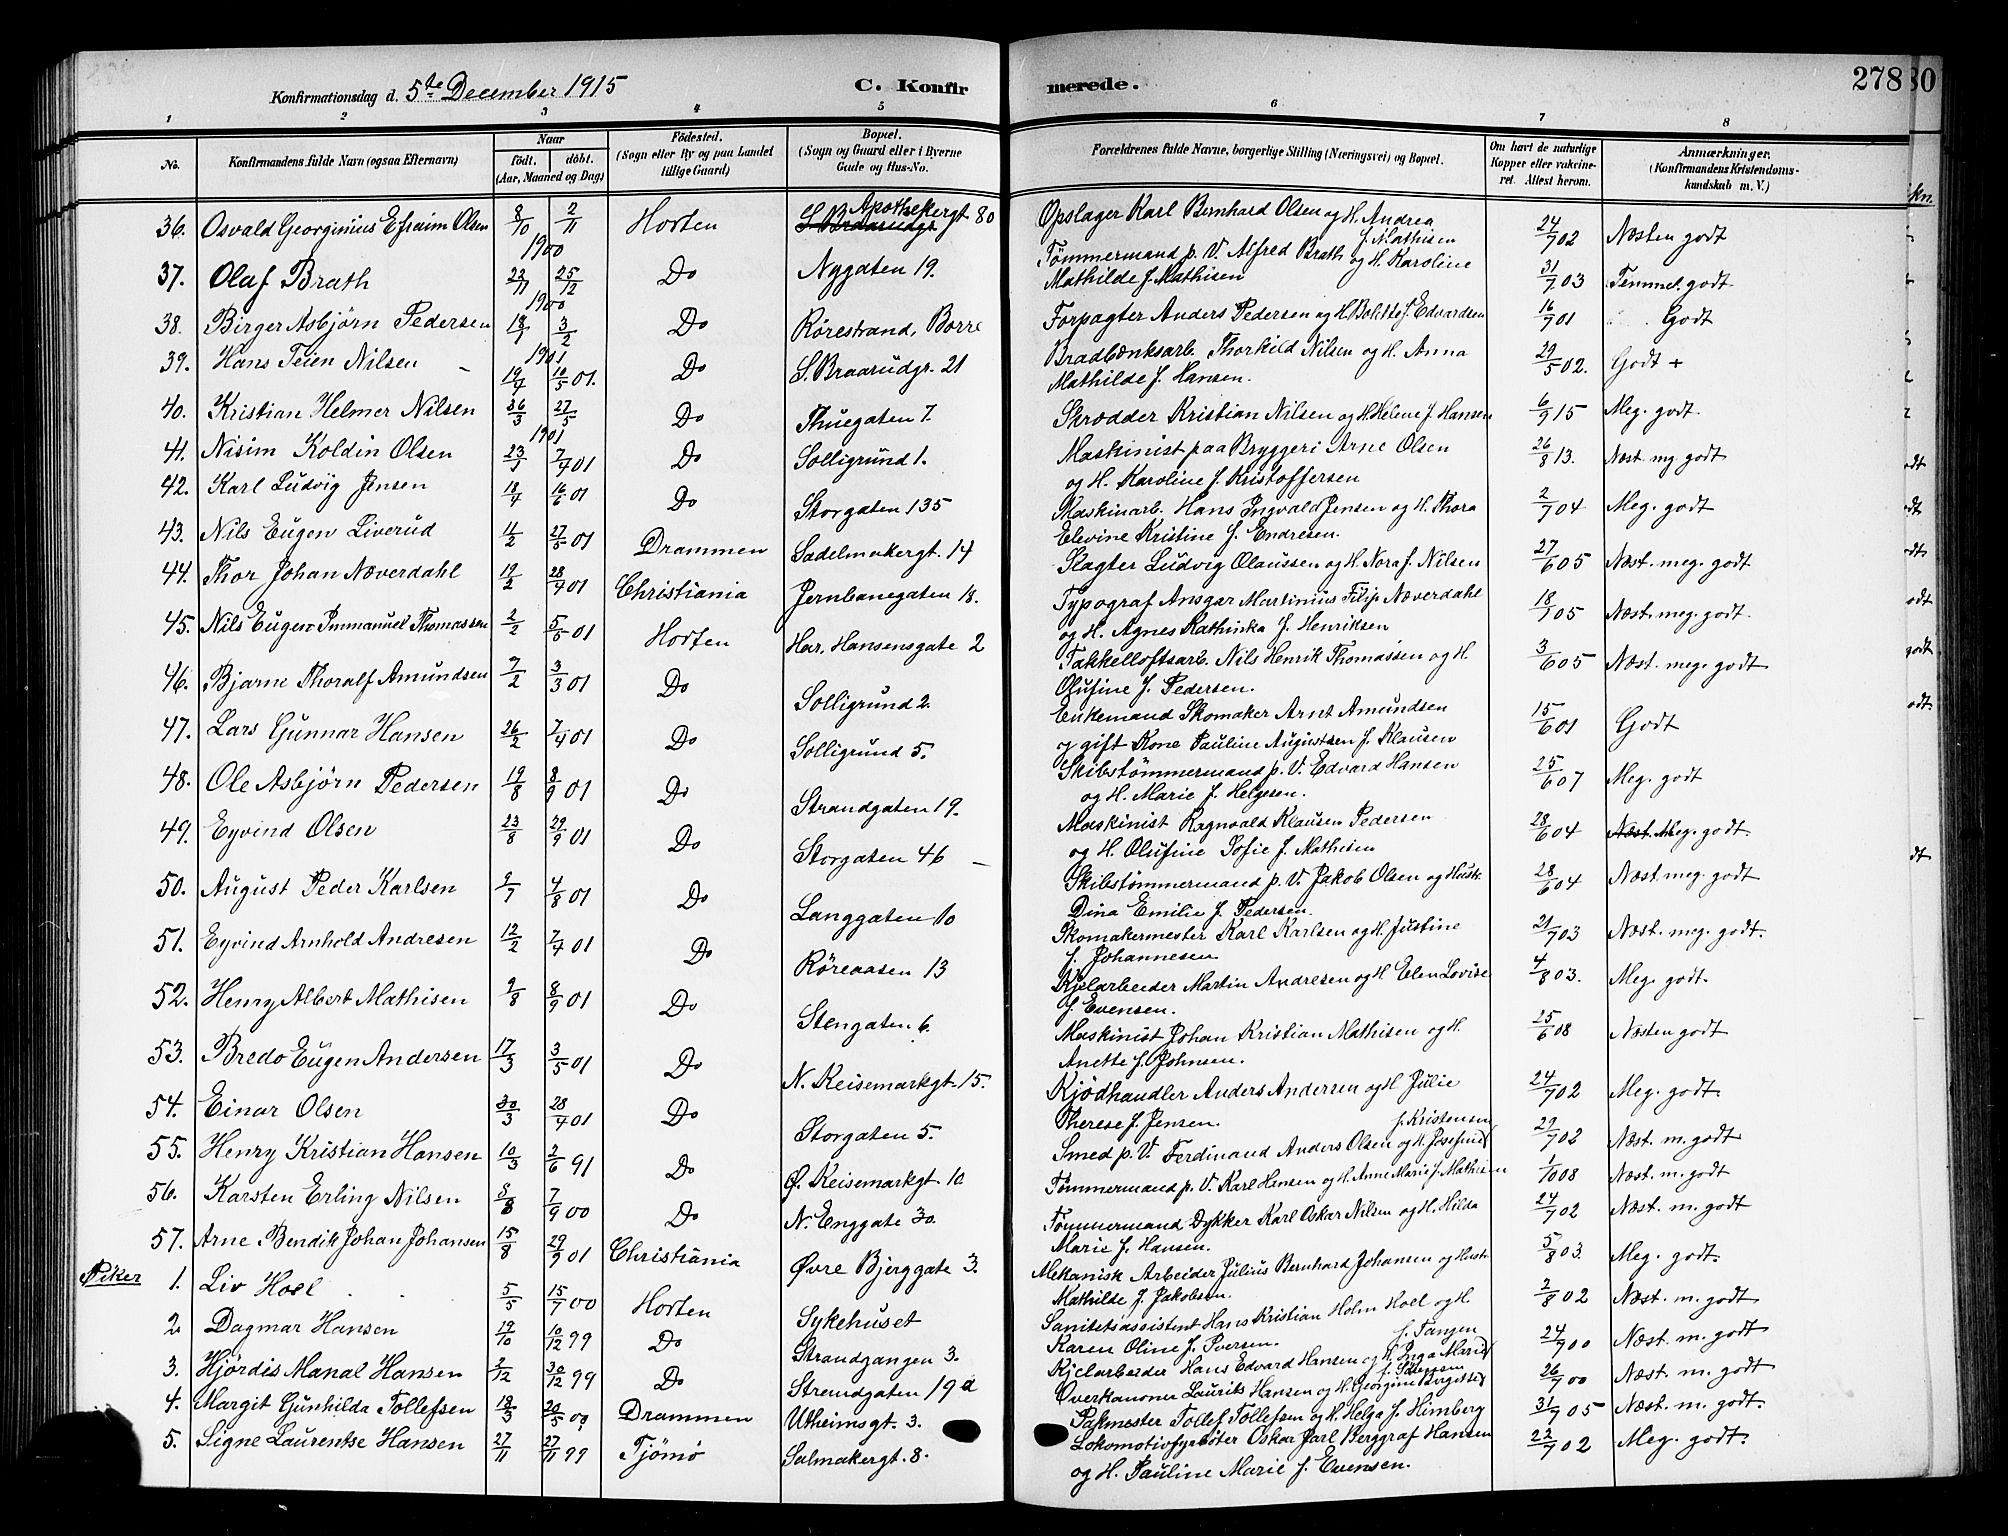 Konfirmationsdag d. 5te December 1915 C. Konfir merede. 278 80
1 2 3 4 5 6 7 8
No. Konfirmandens fulde Navn (ogsaa Efternavn) Naar født. døbt. (Aar, Maaned og Dag) Fødested. (Sogn eller By og paa Landet tillige Gaard) Bopæl. (Sogn og Gaard eller i Byerne Gade og Hus-No. Forældrenes fulde Navne, borgerlige Stilling (Næringsvei) og Bopæl. Om havt de naturlige Kopper eller vakcineret. Attest herom. Anmærkninger. (Konfirmandens Kristendomskundskab m. V.)
36. Osvald Georginius Efraim Olsen 8/10 2/11 1900 Horten Apothekergt 80 Opslager Karl Bernhard Olsen og H. Andrea f. Mathisen 24/7 02 Næsten godt
37. Olaf Brath 22/11 25/12 1900 Do Nygaten 19. Tømmermand p. V. Alfred Brath og H. Karoline Mathilde f. Mathisen 31/7 03 Temmel. godt
38. Birger Asbjørn Pedersen 18/1 3/2 1901 Do Rørestrand, Borre Forpagter Anders Pedersen og H. Bolette f. Edvardsen 16/9 01 " Godt
39. Hans Teien Nilsen 19/4 10/5 01. Do S. Braarudgt. 21 Bradbænksarb. Thorkild Nilsen og H. Anna Mathilde f. Hansen. 29/5 02. Godt +
40. Kristian Helmer Nilsen 26/3 27/5 1901 Do Thuegaten 7. Skrædder Kristian Nilsen og H. Helene f. Hansen 6/9 15 Meg. godt
41. Nisim Koldin Olsen 23/1 7/4 01 Do Solligrund 1. Maskinist paa Bryggeri Arne Olsen og H. Karoline f. Kristoffersen 26/8 13. Næst. mg. godt
42. Karl Ludvig Jensen 18/4 16/6 01 Do Storgaten 135 Maskinarb. Hans Ingvald Jensen og H. Thora Elevine Kristine f. Endresen. 2/7 04 Meg. godt
43. Nils Eugen Liverud 11/2 27/5 01 Drammen Sadelmakergt. 14 Slagter Ludvig Olaussen og H. Nora f. Nilsen 27/6 05 Næst. meg. godt
44. Thor Johan Næverdahl 19/2 28/4 01 Christiania Jernbanegaten 18. Typograf Ansgar Martinius Filip Næverdahl og H. Agnes Kathinka f. Henriksen 18/7 05 Næst. meg. godt.
45. Nils Eugen Immanuel Thomassen 2/2 5/5 01 Horten Har. Hansensgate 2 Takkelloftsarb. Nils Henrik Thomassen og H. Olufine f. Pedersen. 3/6 05 Næst. meg. godt
46. Bjarne Thoralf Amundsen 7/2 3/3 01 Do Solligrund 2. Enkemand Skomaker Arnt Amundsen og gift Kone Pauline Augustsen f. Klausen 15/6 01 Godt
47. Lars Gunnar Hansen 26/2 7/4 01 Do Solligrund 5. Skibstømmermand p. V. Edvard Hansen og H. Marie f. Helgesen. 25/6 07 Meg. godt
48. Ole Asbjørn Pedersen 19/8 8/9 01 Do Strandgaten 19. Maskinist Ragnvald Klausen Pedersen og H. Olufine Sofie f. Mathisen 28/6 04 Næst. Meg. godt.
49. Eyvind Olsen 23/8 29/9 01 Do Storgaten 46 Skibstømmermand p. V. Jakob Olsen og Hustr. Dina Emilie f. Pedersen. 28/6 04 Næst. meg. godt
50. August Peder Karlsen 9/7 4/8 01 Do Langgaten 10 Skomakermester Karl Karlsen og H. Justine f. Johannesen 21/7 03 Næst. meg. godt.
51. Eyvind Arnhold Andresen 12/2 7/4 01 Do Røreaasen 13 Kjelarbeider Martin Andresen og H. Elen Lovise f. Evensen. 4/8 03. Meg. godt.
52. Henry Albert Mathisen 9/8 8/9 01 Do Stengaten 6. Maskinist Johan Kristian Mathisen og H. Anette f. Johnsen. 25/6 08 Næsten godt
53. Bredo Eugen Andersen 17/3 3/5 01 Do N. Keisemarkgt. 15. Kjødhandler Anders Andersen og H. Julie Therese f. Jensen. 24/7 02 Meg. godt.
54. Einar Olsen 30/3 28/4 01 Do Storgaten 5. Smed p. V. Ferdinand Anders Olsen og H. Josefine f. Kristensen 29/7 02 Næst. m. godt
55. Henry Kristian Hansen 10/3 2/6 91 Do Ø. Keisemarkgt. 10 Tømmermand p. V. Karl Hansen og H. Anne Marie f. Mathisen 1/10 08 Næst. m. godt
56. Karsten Erling Nilsen 8/8 7/9 00 Do N. Enggate 30. Tømmermand Dykker Karl Oskar Nilsen og H. Hilda Marie f. Hansen. 24/7 02 Næst. m. godt
57. Arne Bendik Johan Johansen 15/8 29/9 01 Christiania Øvre Bjerggate 3. Mekanisk Arbeider Julius Bernhard Johansen og Hustr. Mathilde f. Jakobsen. 5/8 03. Meg. godt.
Piker 1. Liv Hoel 5/5 15/7 00 Horten Sykehuset Sanitetsassistent Hans Kristian Holm Hoel og H. Karen Oline f. Iversen. 2/8 02 Næst. m. godt
2. Dagmar Hansen 19/10 10/12 99 Do Strandgangen 3. Kjelarbeider Hans Edvard Hansen og H. Inga Marie f. Tangen 24/7 00 Næst. m. godt
3. Hjørdis Manal Hansen 2/12 30/12 99 Do Strandgaten 19 a Overkanoner Laurits Hansen og H. Georgine Birgitte 26/7 00 Næst. m. godt
4. Margit Gunhilda Tollefsen 18/3 20/5 00 Drammen Utheimsgt. 3. Pakmester Tollef Tollefsen og H. Helga f. Himberg 31/7 05 Næst. m. godt.
5. Signe Laurentse Hansen 27/11 27/11 99 Tjømø Salmakergt. 8. Lokomotivfyrbøter Oskar Jarl Berggraf Hansen og H. Pauline Marie f. Evensen. 22/9 02 Meg. godt.